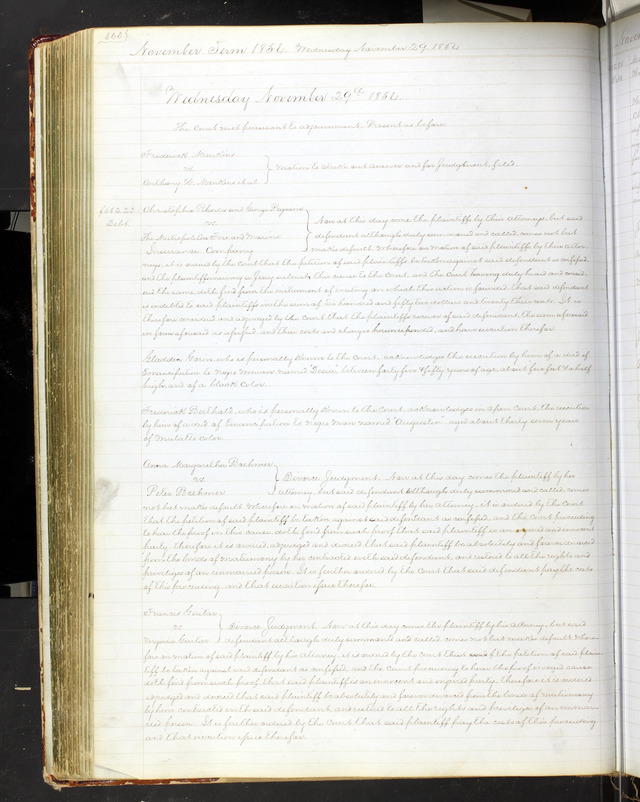 November Term 1854. Wednesday November 29. 1854
Wednesday November 29th 1854.
The Court met pursuant to adjournment. Present as before
Frederick
vs
Anthony H. et al
Motion to strike out answer and for Judgment filed.
$652.23
Debt.
Christopher and George
vs
The Metropolitan Fire and Marine
Insurance Company
Now at this day come the plaintiffs by their Attorneys, but said
defendant although duly summoned and called comes not but
makes default Wherefore on motion of said plaintiffs by their Attor-
ney, it is ordered by the Court that the petition of said plaintiffs be taken against said defendant as confessed
and the plaintiffs waiving a Jury submit this cause to the Court, and the Court having duly heard and consid-
ered the same doth find from the instrument of writing on which this action is founded, that said defendant
is indebted to said plaintiffs in the sum of six hundred and fifty two dollars and twenty three cents. It is
therefore considered and adjudged by the Court that the plaintiffs recover of said defendant, the sum aforesaid
in form aforesaid as found and their costs and charges herein expended, and have execution therefor.
who is personally known to the Court, acknowledges the execution by him of a deed of
Emancipation to Negro Woman named between forty five & fifty years of age, about five feet & a half
high, and of a black color.
Frederick who is personally known to the Court acknowledges in Open Court, the execution
by him of a deed of Emancipation to Negro Man named "Augustin" aged about thirty seven years
of Mulatto color.
Anna Margaretha Boehmer
vs
Peter Boehmer
Divorce, Judgment. Now at this day comes the plaintiff by her
Attorney, but said defendant although duly summoned and called comes
not but makes default Wherefore on motion of said plaintiff by her Attorney, it is ordered by the Court
that the petition of said plaintiff be taken against said defendant as confessed, and the Court proceeding
to hear the proof in this cause doth find from such proof that said plaintiff is an innocent and injured
party, therefore it is ordered, adjudged and decreed that said plaintiff be absolutely and forever divorced
from the bonds of matrimony by her contracted with said defendant, and restored to all the rights and
privileges of an unmarried person. It is further ordered by the Court that said defendant pay the costs
of this proceeding and that execution issue therefor.
Francis
vs
Virginia
Divorce Judgment. Now at this day comes the plaintiff by his Attorney, but said
defendant although duly summoned and called comes not but makes default Where-
fore on motion of said plaintiff by his Attorney it is ordered by the Court that the petition of said plain-
tiff be taken against said defendant as confessed, and the Court proceeding to hear the proof in said cause
doth find from such proof that said plaintiff is an innocent and injured party, therefore it is ordered
adjudged and decreed that said plaintiff be absolutely and forever divorced from the bonds of matrimony
by him contracted with said defendant and restored to all the rights and privileges of an unmar-
ried person. It is further ordered by the Court that said plaintiff pay the costs of this proceeding
and that execution issue therefor.